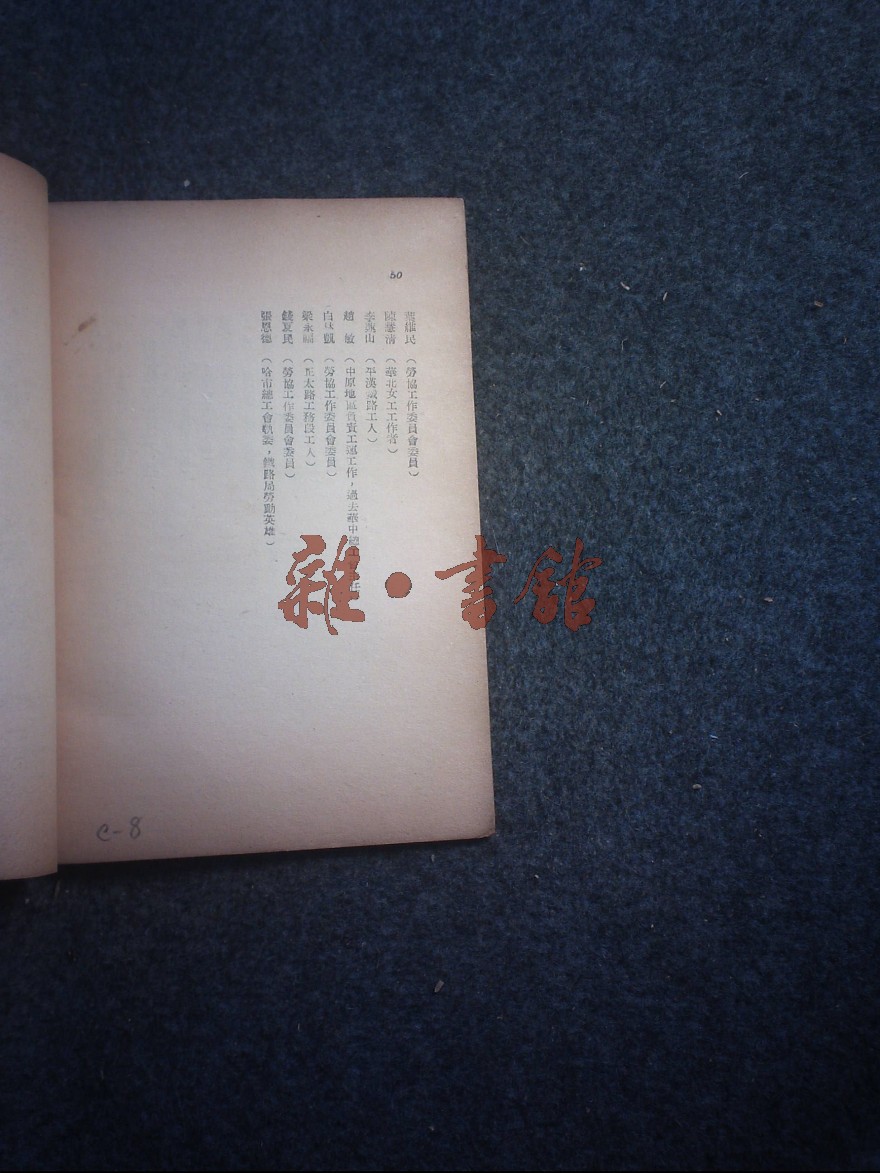 50
葉維民 (勞協工作委員會委員)
陳慧清 (華北女工工作者)
李燕山 (平漢鐵路工人)
趙 敏 (中原地區負責工運工作,過去華中總工
白 凱 (勞協工作委員會委員)
梁永福 (正太路工務段工人)
錢夏民 (勞協工作委員會委員)
張恩德 (哈市總工會執委,鐵路局勞動英雄)
雜·書館
c-8